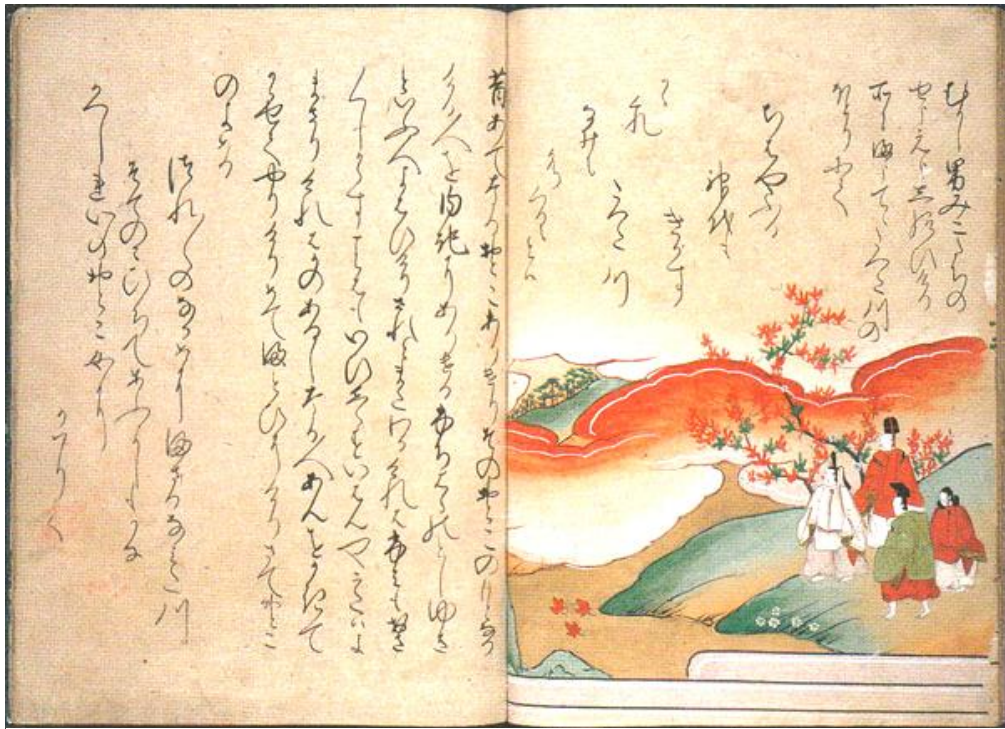 むかし男みこたちの
せうえうし給ひける
所にまうてゝたつた川の
ほとりにて
ちはやふる
神代も
きかす
たつた川
昔あてなるおとこありけりそのおとこのもとなり
ける人を内記にありけるふちはらのとしゆき
といふ人よはひけりされとまたわかけれはふみもおさ
〳〵しからすことはもいひしらすいはんやうたはよ
まさりけれはかのあるしなる人あんをかきて
かゝせてやりけりめてまとひにけりさておとこ
のよめる
つれ〳〵のなかめにまさるなみた川
そてのみひちてあふよしもな
かへしれいのおとこ女に
かはりて